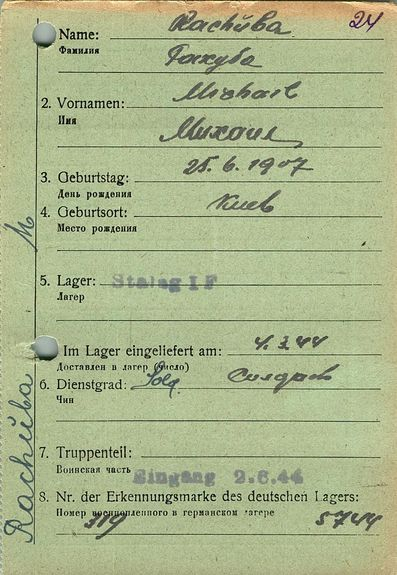 24
Name: Rachuba
Фамилия
2. Vornamen: Michael
Имя
Михаил
3. Geburtstag: 25.6.1907
День рождения
4. Geburtsort: Киев
Место рождения
5. Lager: Stalag I F
Лагерь
Im Lager eingeliefert am: 4.3.44
Доставлен в лагерь (число)
6. Dienstgrad: Sold. Солдат
Чин
7. Truppenteil:
Воинская часть
Eingang 2.6.44
8. Nr. der Erkennungsmarke des deutschen Lagers:
Номер военнопленного в германском лагере
319 5744
Rachuba M